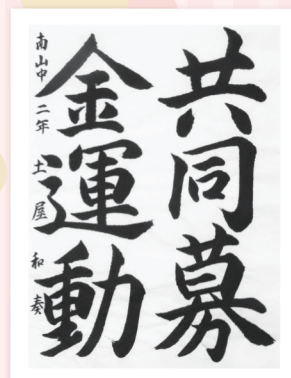 共同募
金運動
南山中二年土屋和奏